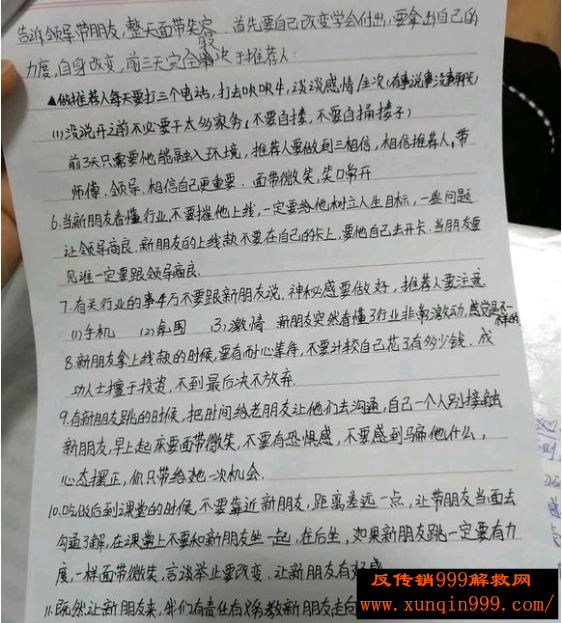 告诉领导带朋友，整天面带笑容，首先要自己改变学会付出，要拿出自己的
力度，自身改变，前三天完全取决于推荐人：
▲做推荐人每天要打三个电话，打去吹吹牛，谈谈感情
(1)没说开之前不必要干太多家务（不要自接，不要自捅楼子）
前3天只需要他能融入环境，推荐人要做到三相信，相信推荐人，带
师傅、领导，相信自己更重要．面带微笑，笑口常开
6.当新朋友看懂行业，不要催他上线，一定要给他树立人生目标，一些问题
让领导商良．新朋友的上线款不要在自己的卡上，要他自己去开卡．当朋友要
见谁一定要跟领导商良．
7.有关行业的事4万不要跟新朋友说，神秘感要做好，推荐人要注意
(1)手机 (2)氛围 3)激情 新朋友突然看懂了行业非常激动，感觉是不一样的
8.新朋友拿上线款的时侯，要有耐心等待，不要计较自己花了有多少钱．成
功人士擅于投资，不到最后决不放弃．
9.有新朋友跳的时侯，把时间给老朋友让他们去沟通，自己一个人别接触
新朋友，早上起床要面带微笑，不要有恐惧感，不要感到骗他什么，
心态摆正，你只带给她一次机会．
10.吃饭后到课堂的时侯，不要靠近新朋友，距离差远一点，让带朋友当面去
沟通了解，在课堂上不要和新朋友坐一起，往后坐，如果新朋友跳一定要有力
度，一样面带微笑，言谈举止要改变．让新朋友有好感
11.既然让新朋友来，我们有责任有义务教新朋友走向
反传销999解救网
www.xunqin999.com/